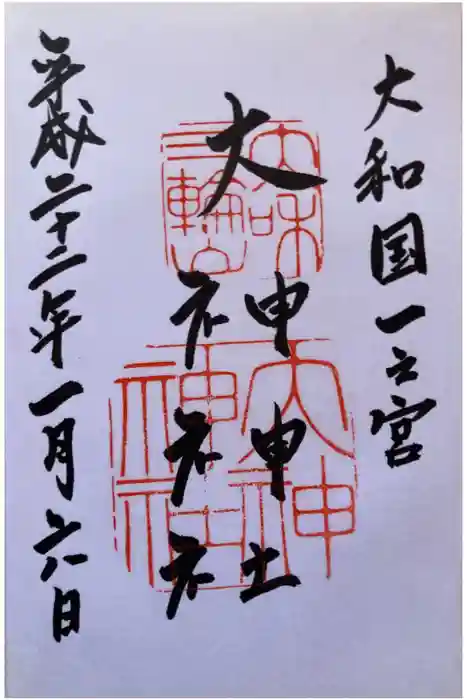 大和国一之宮
大神神社
平成二十二年一月六日
大和
三輪山
大神
神社